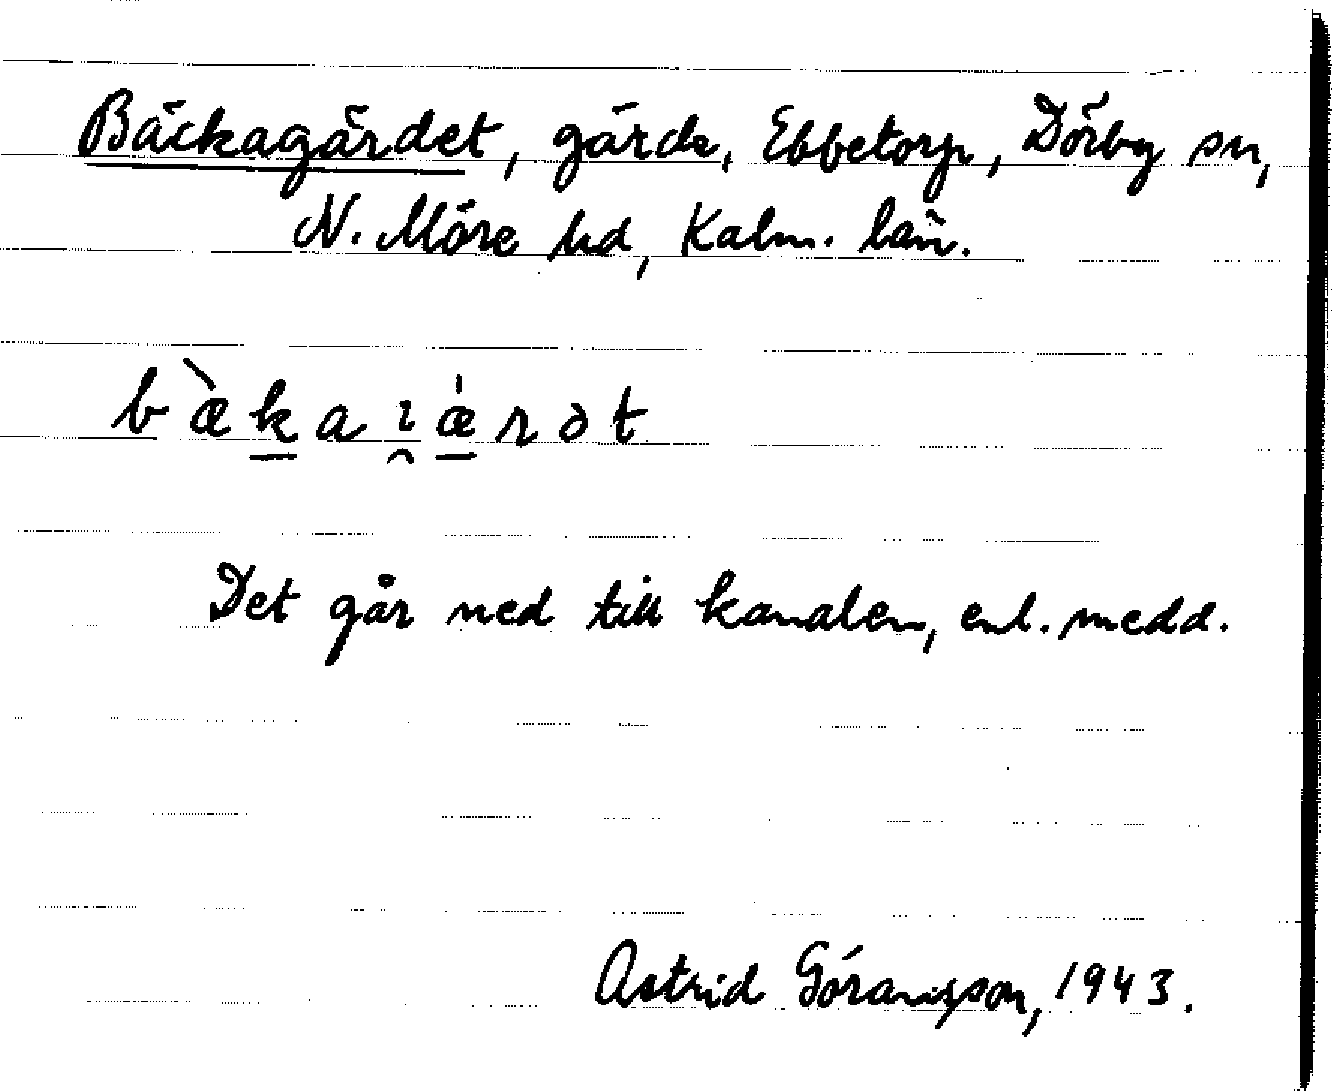 Bäckagärdet, gärde, Ebbetorp, Dörby sn,
N. Möre hd, Kalm. län.
bækaɪærət
Det går ned till kanalen, enl. medd.
Astrid Göransson, 1943.